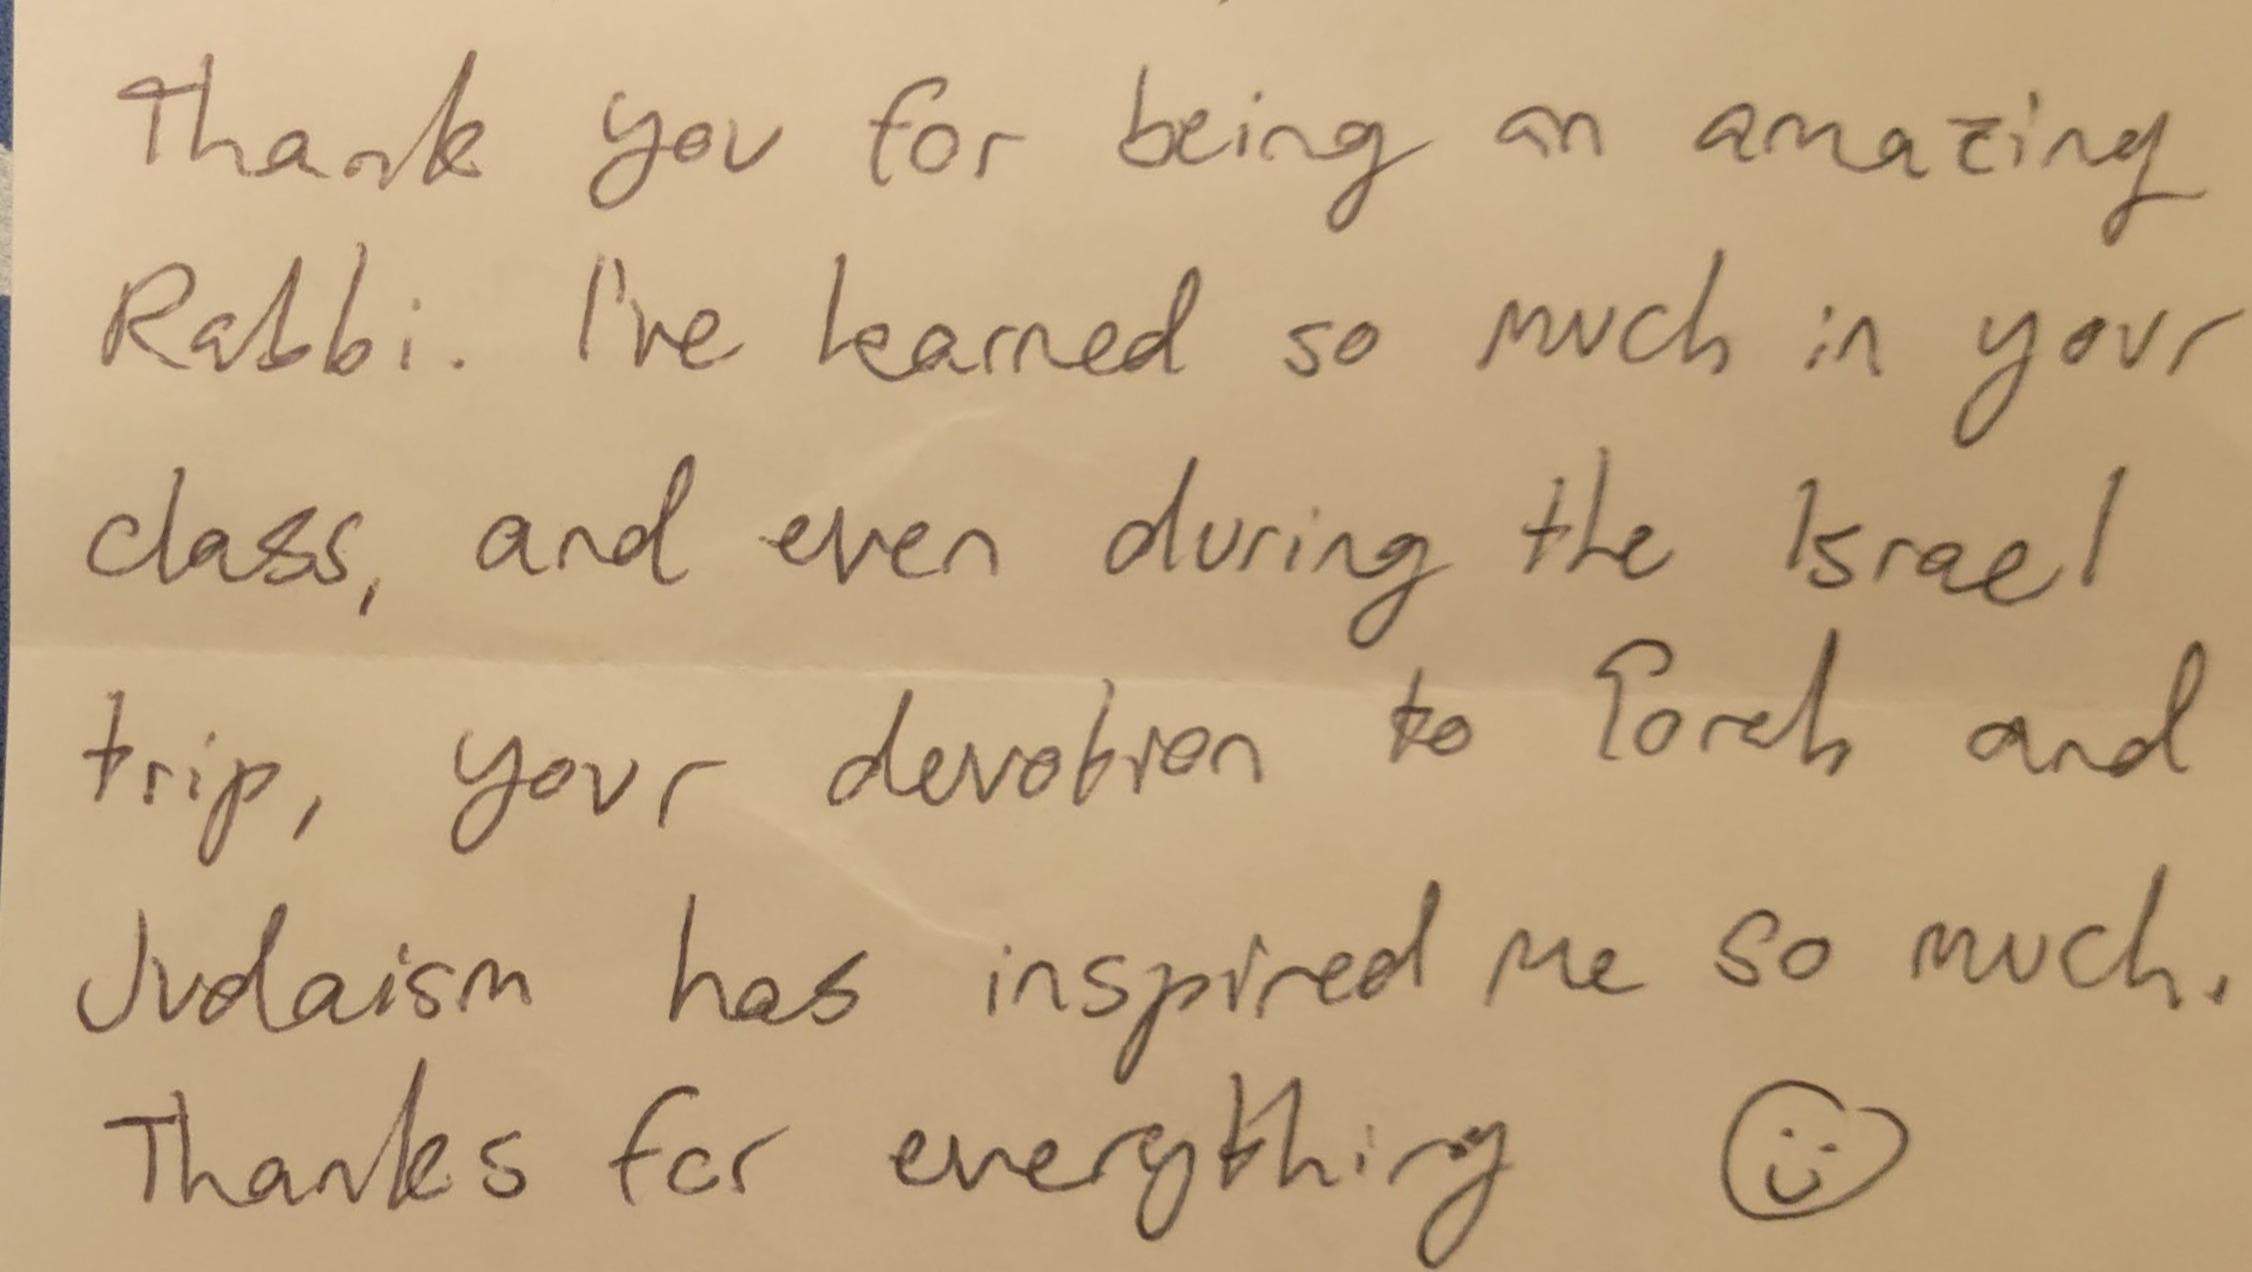 Thank you for being an amazing
Rabbi. I've learned so much in your
class, and even during the Israel
trip, your devotion to Torah and
Judaism has inspired me so much.
Thanks for everything